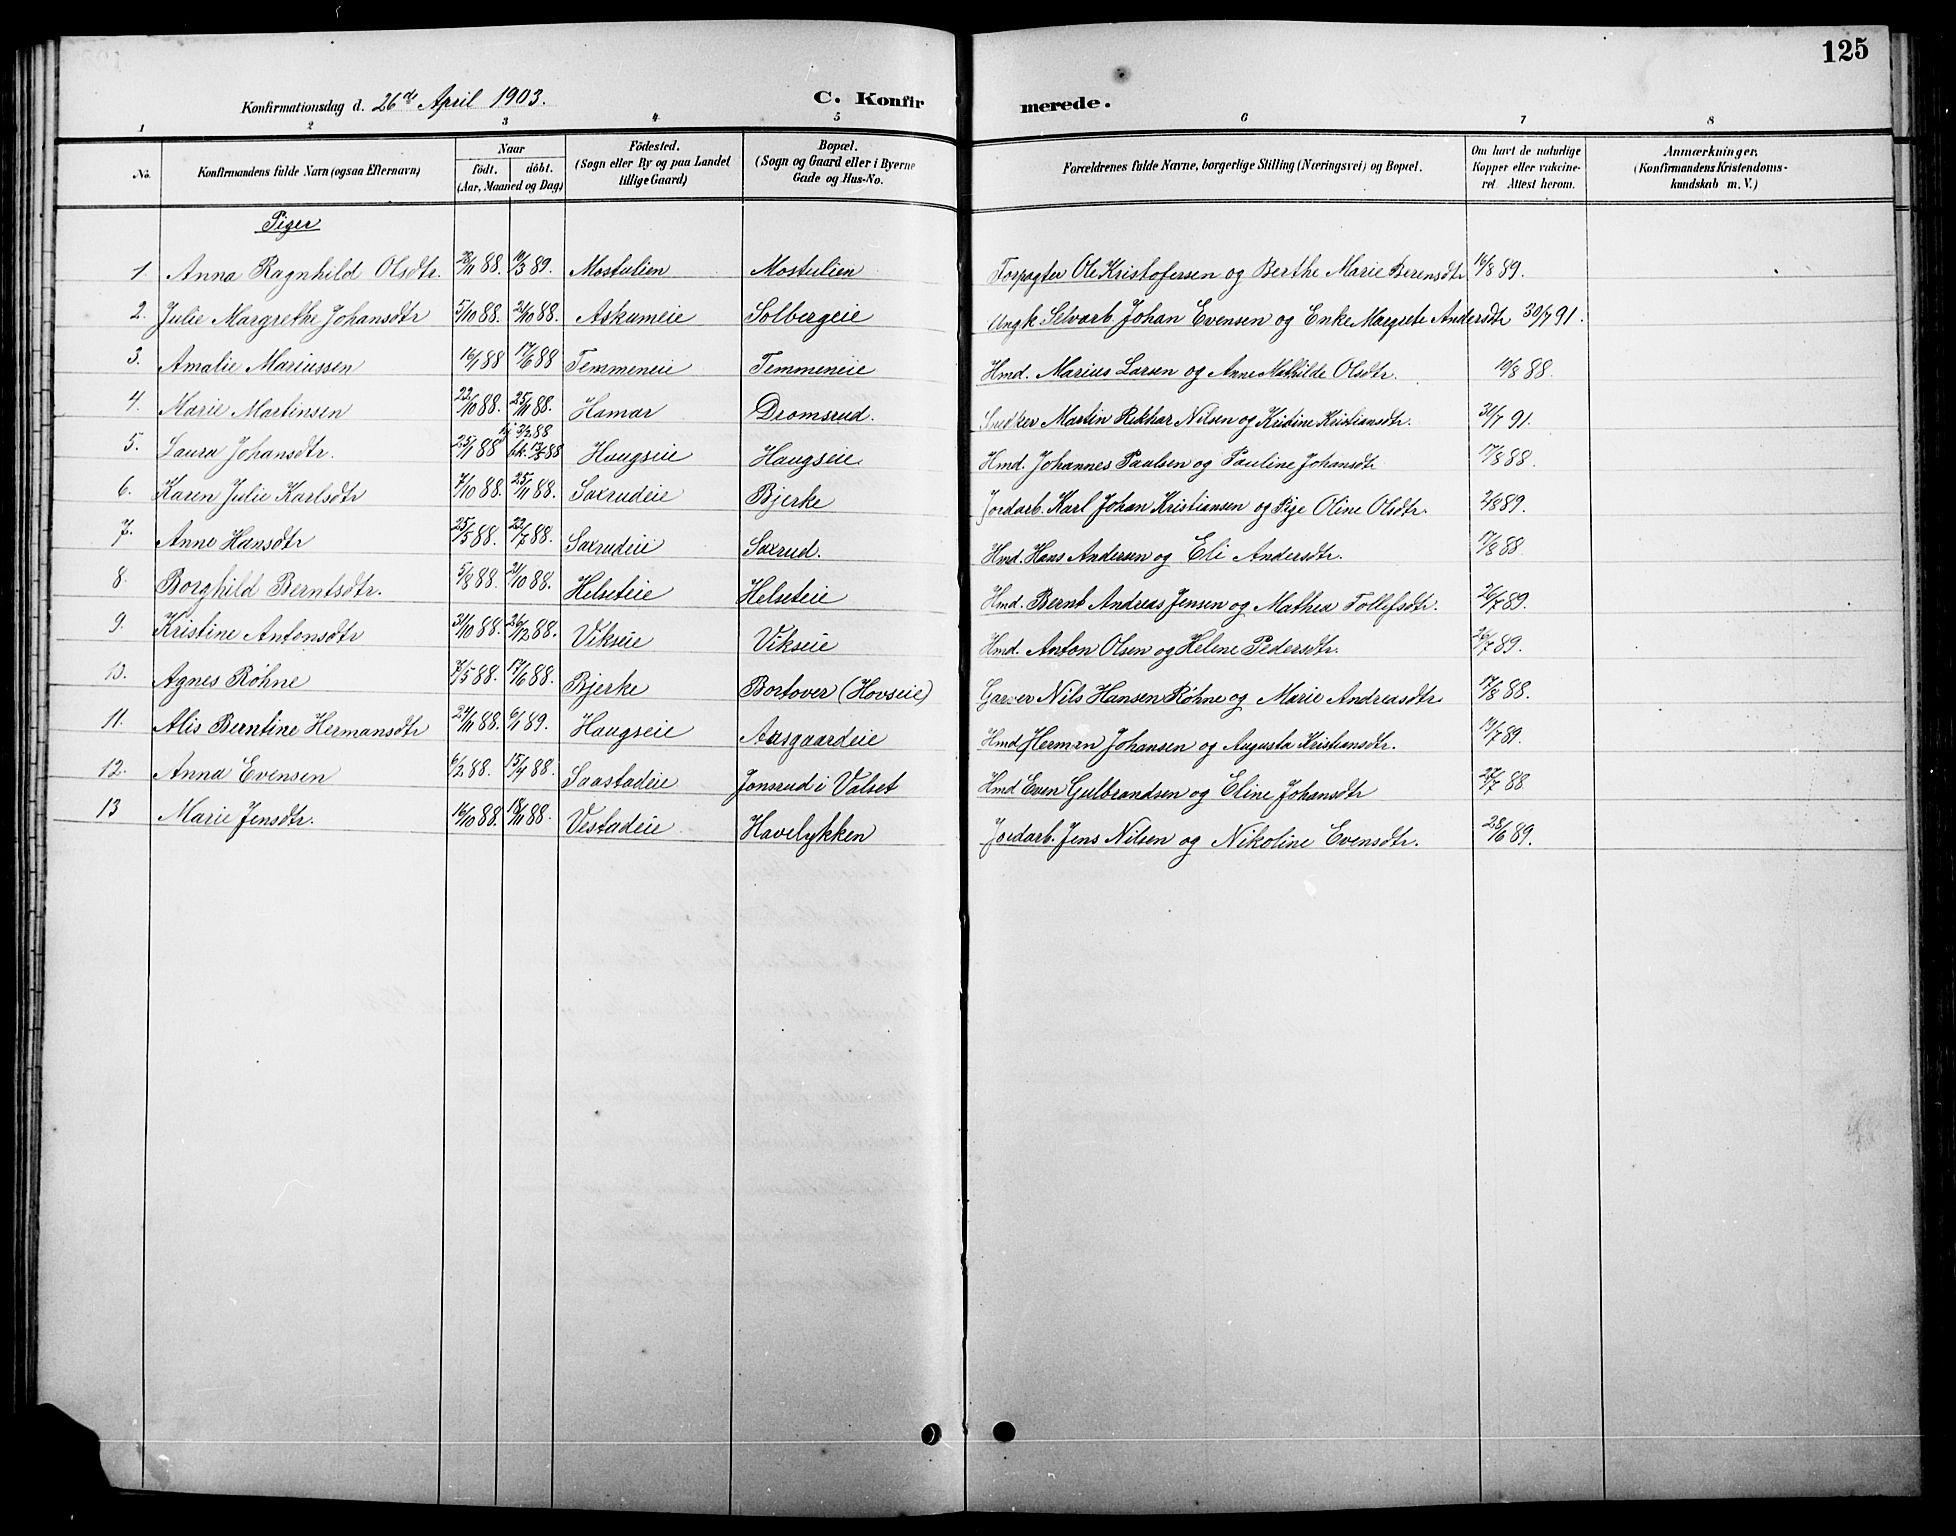 125
Konfirmationsdag d. 26de April 1903. C. Konfirmerede.
1 2 3 4 5 6 7 8
No. Konfirmandens fulde Navn (ogsaa Efternavn) Naar födt. döbt. (Aar, Maaned og Dag) Födested. (Sogn eller By og paa Landet tillige Gaard) Bopæl. (Sogn og Gaard eller i Byerne Gade og Hus-No. Forældrenes fulde Navne, borgerlige Stilling (Næringsvei) og Bopæl. Om havt de naturlige Kopper eller vakcineret. Attest herom. Anmærkninger, (Konfirmandens Kristendomskundskab m. V.)
Piger
1. Anna Ragnhild Olsdtr. 28/11 88. /3 89. Mostulien Mostulien Forpagter Ole Kristofersen og Berthe Marie Berensdtr 16/8 89.
2. Julie Margrethe Johansdtr 5/10 88. 21/10 88. Askumeie Solbergeie Ungk Selvarb. Johan Evensen og Enke Margrete Andersdtr 30/7 91.
3. Amalie Mariussen 16/1 88 17/6 88 Temmeneie Temmeneie Hmd. Marius Larsen og Anne Mathilde Olsdtr. 10/8 88.
4. Marie Martinsen 22/10 88. 25/11 88. Hamar Dromsrud. Martin Rikhar Nilsen og Kristine Kristiansdtr. 31/7 91.
5. Laura Johansdtr. 25/1 88 hj 3/2 88 bk. 13/5 88 Haugseie Haugseie Hmd. Johannes Paulsen og Pauline Johansdtr 17/8 88.
6. Karen Julie Karlsdtr 7/10 88. 25/11 88. Saxrudeie Bjerke Jordarb. Karl Johan Kristiansen og Pige Oline Olsdtr. 2/8 89.
7. Anne Hansdtr 25/5 88. 22/7 88. Saxrudeie Saxrud. Hmd. Hans Andersen og Eli Andersdtr. 17/8 88.
8. Borghild Berntsdtr. 5/8 88. 21/10 88. Helseteie Helseteie Hmd. Bernt Andreas Jensen og Mathea Tollefsdtr. 26/7 89.
9. Kristine Antonsdtr 31/10 88. 26/12 88. Vikseie Vikseie Hmd. Anton Olsen og Helene Pedersdtr. 26/7 89.
10. Agnes Röhne 7/5 88. 17/6 88. Bjerke Bortover (Hovseie) Garver Nils Hansen Röhne og Marie Andreasdtr. 17/8 88.
11. Alis Berntine Hermansdtr 24/11 88. 6/1 89. Haugseie Aasgaardeie Hmd Herman Johansen og Augusta Kristiansdtr. 19/7 89.
12. Anna Evensen 6/2 88. 15/4 88. Saastadeie Jonsrud i Valset Hmd Even Gulbrandsen og Eline Johansdtr 27/7 88
13 Marie Jensdtr. 16/10 88. 18/11 88. Vestadeie Havelykken Jordarb. Jens Nilsen og Nikoline Evensdtr. 28/6 89.